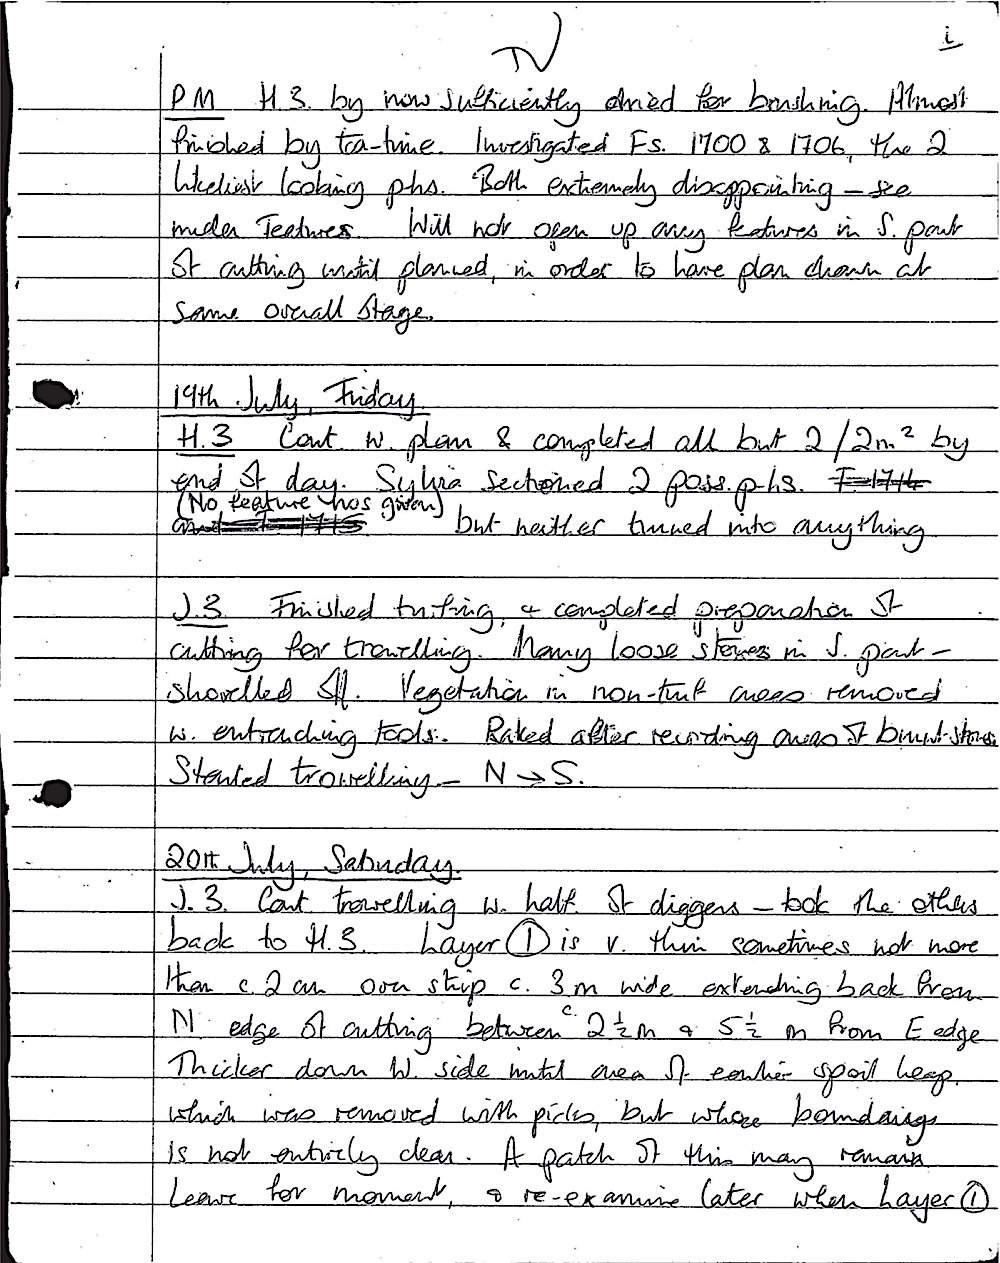 IV
i
PM H.3. by now sufficiently dried for brushing. Almost
finished by tea-time. Investigated Fs. 1700 & 1706, the 2
likeliest looking phs. Both extremely disappointing – see
under Features. Will not open up any features in S. part
of cutting until planned, in order to have plan drawn at
same overall stage.
19th July, Friday.
H.3 Cont w. plan & completed all but 2 / 2m² by
end of day. Sylvia sectioned 2 poss. phs. F 1714
(No feature nos given)
and F 1715 but neither turned into anything
J.3 Finished turfing, & completed preparation of
cutting for trowelling. Many loose stones in S. part –
shovelled off. Vegetation in non-turf areas removed
w. entrenching tools. Raked after recording areas of burnt stones.
Started trowelling – N → S.
20th July, Saturday.
J.3. Cont trowelling w. half of diggers – took the others
back to H.3. Layer ① is v. thin sometimes not more
than c. 2 cm over strip c. 3m wide extending back from
N edge of cutting between c. 2½m & 5½ m from E edge
Thicker down W. side until area of earlier spoil heap,
which was removed with picks, but whose boundary
is not entirely clear. A patch of this may remain
Leave for moment, & re-examine later when Layer ①